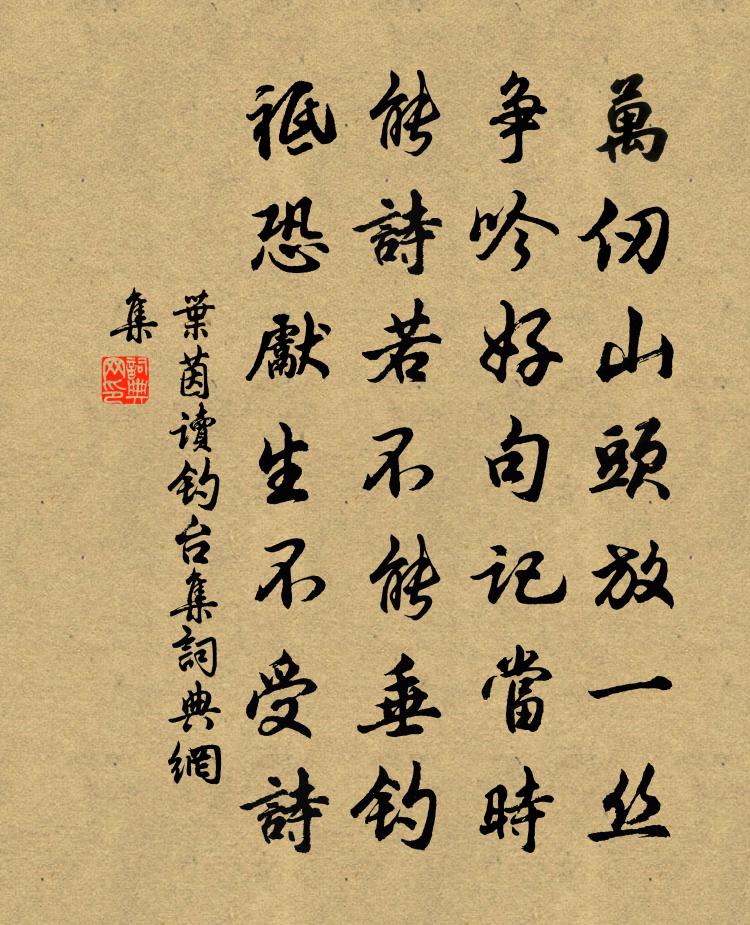 萬仞山頭放一丝
争吟好句記當時
能詩若不能垂釣
祗恐獻生不受詩
葉茵读釣台集詞典網
集
詞典
网印